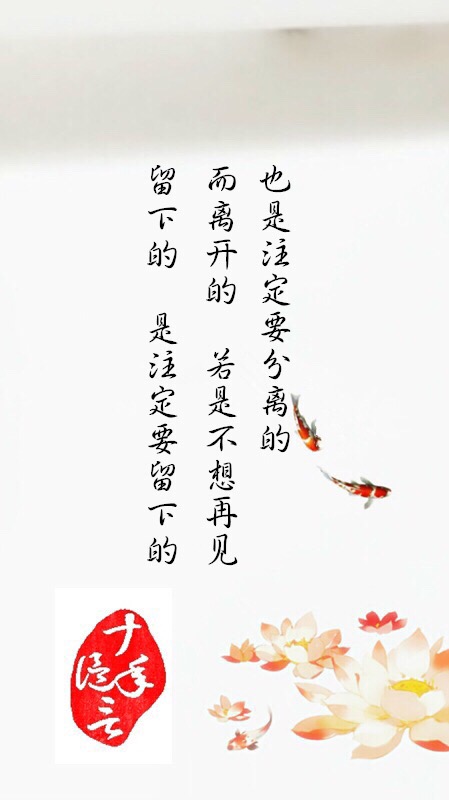 留下的 是注定要留下的
而离开的 若是不想再见
也是注定要分离的
十年